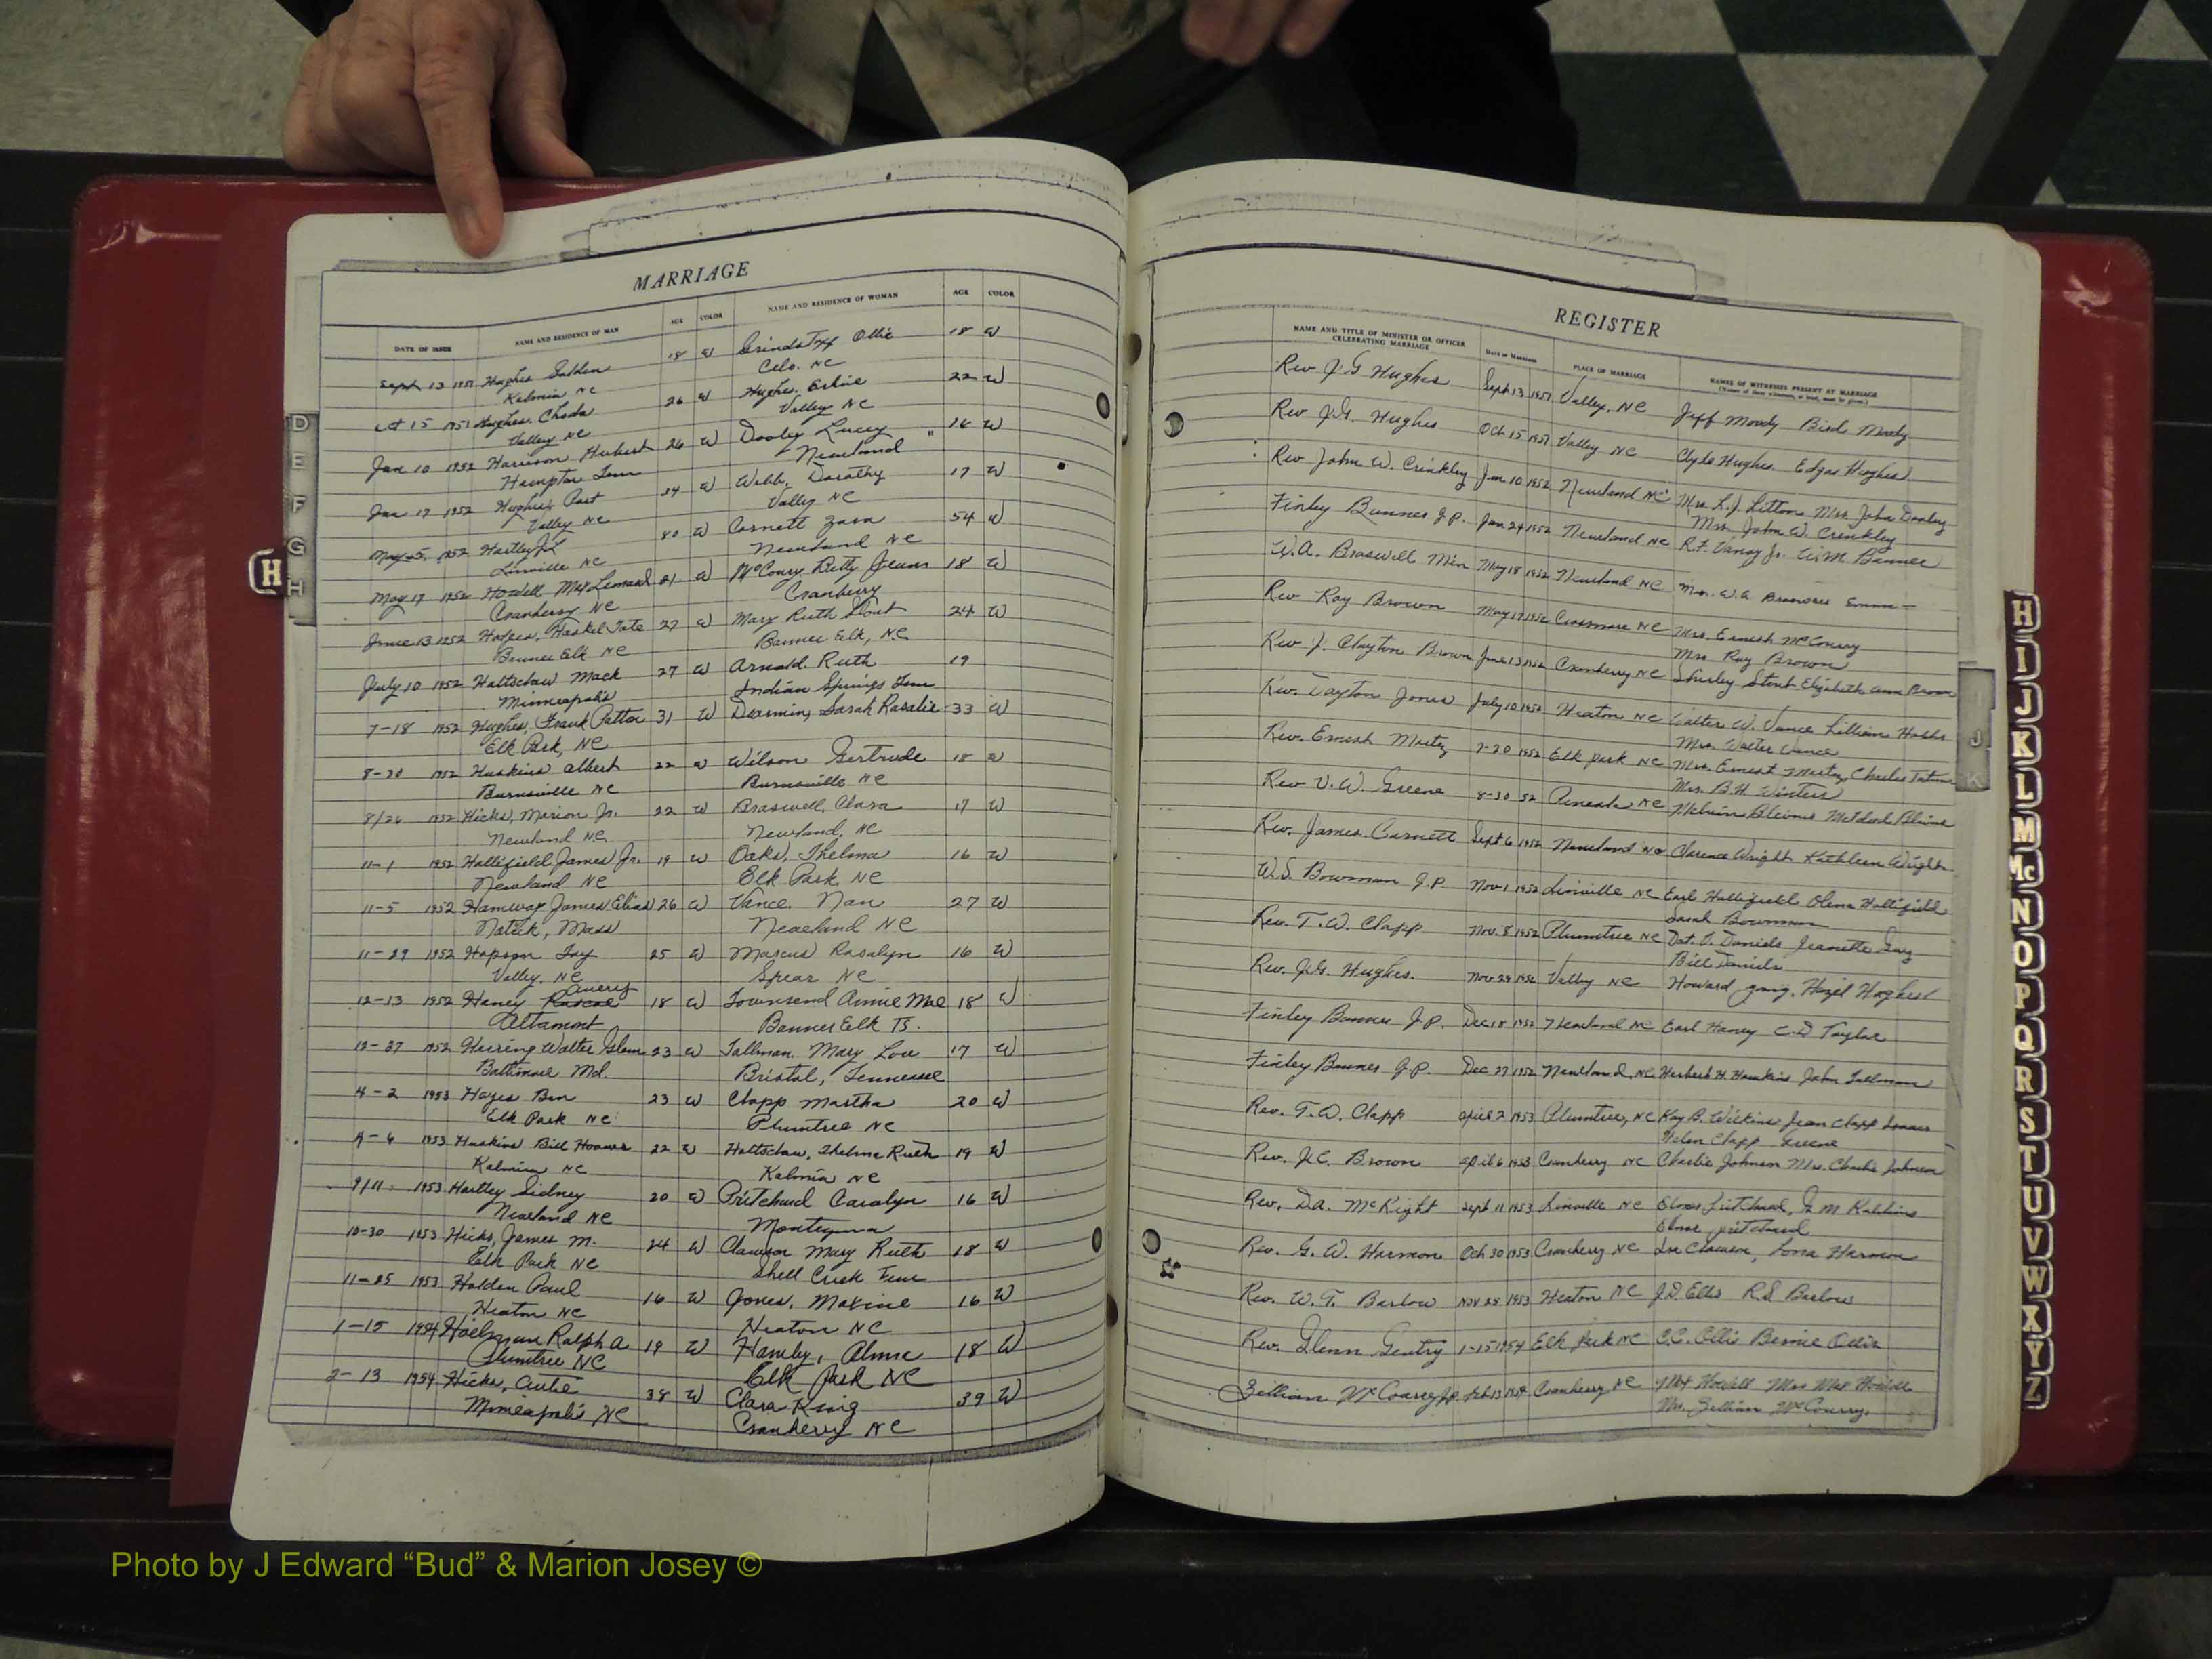 MARRIAGE
DATE OF ISSUE NAME AND RESIDENCE OF MAN AGE COLOR NAME AND RESIDENCE OF WOMAN AGE COLOR
Sept 13 1951 Hughes Golden 18 W Grindstaff Ollie 18 W
Kalmia NC Celo. NC
Oct 15 1951 Hughes, Choda 26 W Hughes, 22 W
Valley NC Valley NC
Jan 10 1952 Harrison Hubert 26 W Dooley Lucey 18 W
Hampton Tenn Newland
Jan 17 1952 Hughes, Post 34 W Webb, Dorothy 17 W
Valley NC Valley NC
May 5 1952 Hartley J L 80 W Cornett Zora 54 W
Linville NC Newland NC
May 17 1952 Howell Max Lenard 21 W McCoury Betty Jean 18 W
Cranberry NC Cranberry
June 13 1952 Hodges, Haskel Tate 27 W Mary Ruth Stout 24 W
Banner Elk NC Banner Elk, NC
July 10 1952 Holtsclaw Mack 27 W Arnold Ruth 19
Minneapolis Indian Springs Tenn
7-18 1952 Hughes, Frank Patton 31 W Sarah Rosalie 33 W
Elk Park, NC
8-30 1952 Huskins Albert 22 W Wilson Gertrude 18 W
Burnsville NC Burnsville NC
8/26 1952 Hicks, Marion Jr. 22 W Braswell, Clara 17 W
Newland NC. Newland, NC
11-1 1952 Hollifield, James Jr. 19 W Oaks, Thelma 16 W
Newland NC Elk Park, NC
11-5 1952 Hamway James Elias 26 W Vance Nan 27 W
Natick, Mass Newland NC
11-29 1952 Hopson Jay 25 W Marcus Rosalyn 16 W
Valley. NC Spear NC
Avery
12-13 1952 Haney Roscoe 18 W Townsend Annie Mae 18 W
Altamont Banner Elk TS.
12-27 1952 Haering Walter Glenn 23 W Tallman Mary Lou 17 W
Baltimore Md. Bristol, Tennessee
4-2 1953 Hayes Ben 23 W Clapp Martha 20 W
Elk Park NC. Plumtree NC
4-6 1953 Huskins Bill Hoover 22 W Holtsclaw, Thelma Ruth 19 W
Kalmia NC Kalmia NC
9/11 1953 Hartley Sidney 20 W Pritchard Carolyn 16 W
Newland NC Montezuma
10-30 1953 Hicks, James M. 24 W Clawson Mary Ruth 18 W
Elk Park NC Shell Creek Tenn
11-25 1953 Holden Paul 16 W Jones, Maxine 16 W
Heaton NC Heaton NC
1-15 1954 Ralph A 19 W 18 W
Plumtree NC Elk Park NC
2-13 1954 Hicks, Autie 38 W Clara King 39 W
Minneapolis NC Cranberry NC
REGISTER
NAME AND TITLE OF MINISTER OR OFFICER CELEBRATING MARRIAGE Date of Marriage PLACE OF MARRIAGE NAMES OF WITNESSES PRESENT AT MARRIAGE
Rev J. G Hughes Sept 13 1951 Valley, NC Jeff Moody Bird Moody
Rev J.G. Hughes Oct 15 1951 Valley NC Clyde Hughes Edgar Hughes
Rev John W. Crinkley Jan 10 1952 Newland NC Mrs. L.J. Litton Mrs John Dooley
Mrs. John W. Crinkley
Finley Banner J.P. Jan 24 1952 Newland NC R.F. Vance Jr. W.M. Banner
W.A. Braswell Min May 18 1952 Newland NC Mrs. W.A.
Rev Roy Brown May 17 1952 Crossnore NC Mrs. Ernest McCoury
Mrs Roy Brown
Rev J. Clayton Brown June 13 1952 Cranberry NC Shirley Stout Elizabeth Ann Brown
Rev. Dayton Jones July 10 1952 Heaton NC Walter W. Vance Lillian Hobbs
Mrs. Walter Vance
Rev. Ernest 7-20 1952 Elk Park NC Mrs. Ernest Charles Tatum
Mrs. B.H. Winters
Rev V. W. Greene 8-30 52 Pineola NC
Rev. James Cornett Sept 6 1952 Newland NC Clarence Wright Kathleen Wright
W.S. Bowman J.P. Nov 1 1952 Linville NC Earl Hollifield Olena Hollifield
Sarah Bowman
Rev. T.W. Clapp Nov. 8 1952 Plumtree NC Dot. V. Daniels Jeanette Guy
Bill Daniels
Rev. J.G. Hughes. Nov 29 1952 Valley NC Howard Hazel Hughes
Finley Banner J.P. Dec 18 1952 Newland NC Earl Haney C.D Taylor
Finley Banner J.P. Dec 27 1952 Newland, NC Herbert H. Hawkins John Tallman
Rev. T.W. Clapp April 2 1953 Plumtree, NC Ray B. Wilkins Jean Clapp
Helen Clapp Greene
Rev. J.C. Brown April 6 1953 Cranberry NC Charlie Johnson Mrs. Charlie Johnson
Rev. D.A. McKight Sept 11 1953 Linville NC
Pritchard
Rev. G.W. Harmon Oct 30 1953 Cranberry NC Clawson, Lona Harmon
Rev. W.T. Barlow Nov 25 1953 Heaton NC J.D. Ellis R.S Barlow
Rev. Glenn Gentry 1-15 1954 Elk Park NC C.C. Ollis Bernie Ollis
Zillian McCoury J.P. Feb 13 1954 Cranberry NC Max Howell Mrs Max Howell
Mrs. Zillian McCoury.
D
E
F
G
H
H
J
K
H
I
J
K
L
M
Mc
N
O
P
Q
R
S
T
U
V
W
X
Y
Z
Photo by J Edward “Bud” & Marion Josey ©